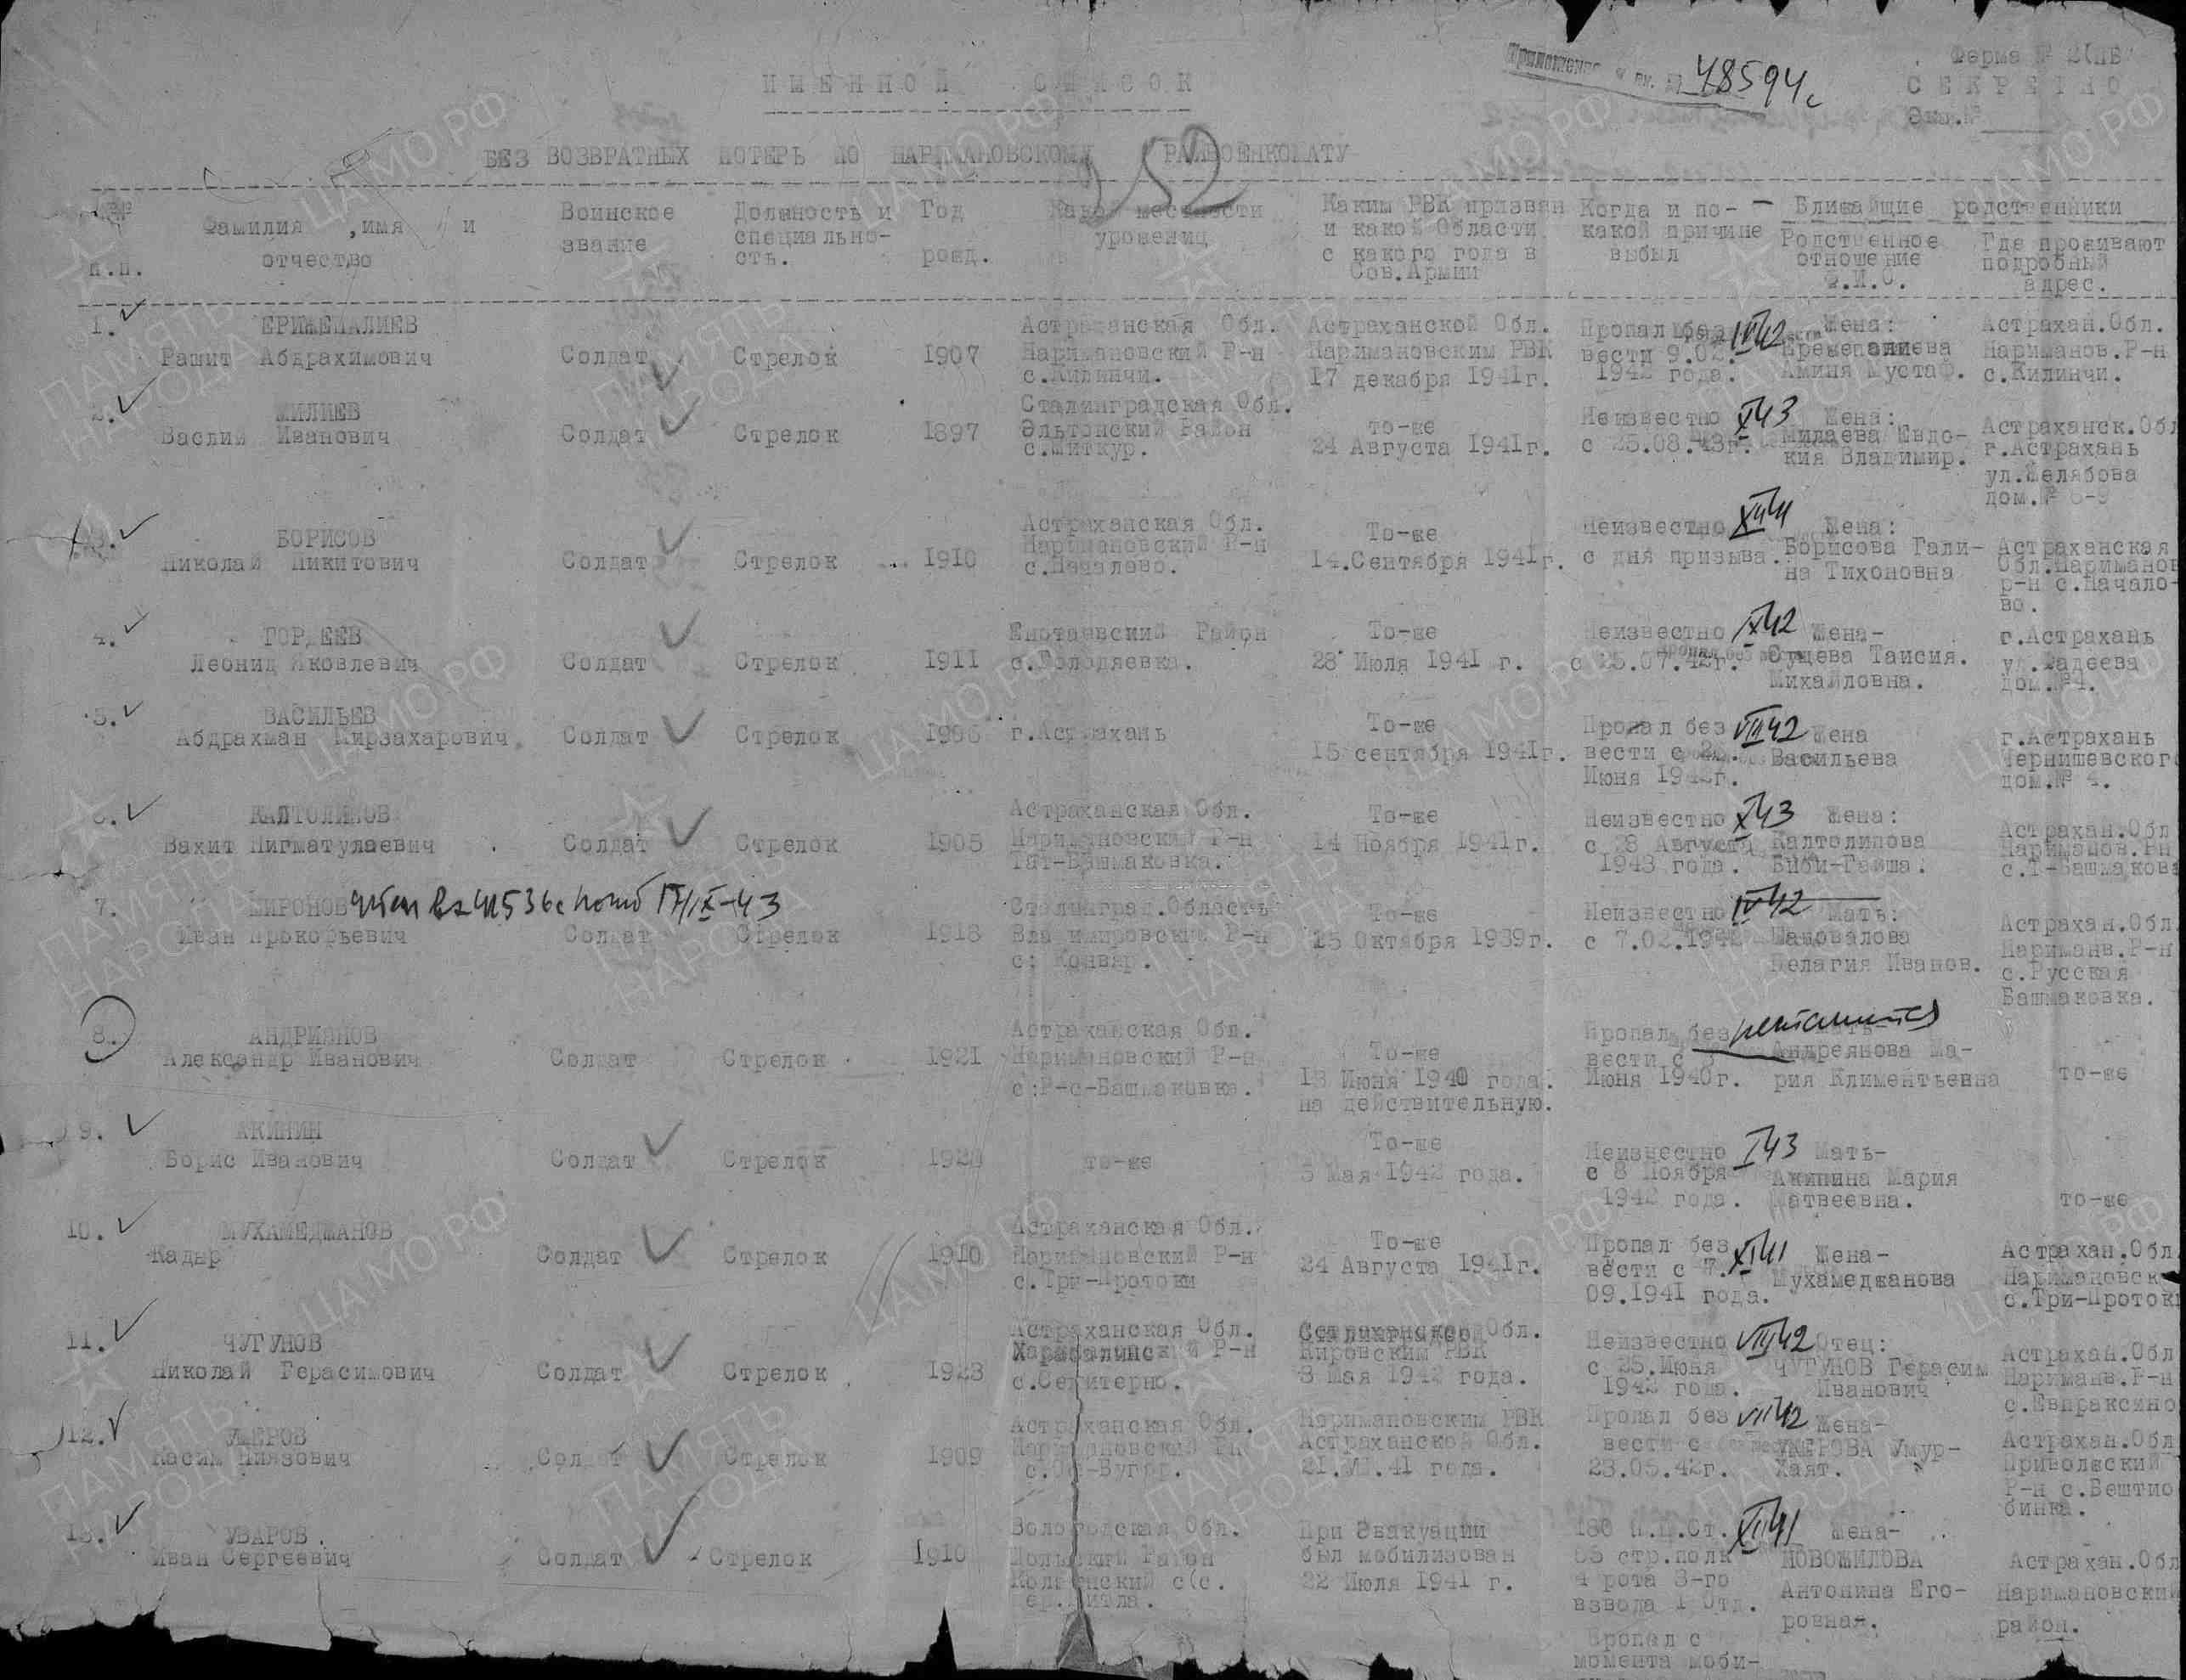 Форма № 2(ПБ
Приложение к вх. № 48594с
ИМЕННОЙ СПИСОК
СЕКРЕТНО
Экз.№
152
БЕЗ ВОЗВРАТНЫХ ПОТЕРЬ ПО НАРИМАНОВСКОМУ РАЙВОЕНКОМАТУ
№№ п.п.
Фамилия ,имя и отчество
Воинское звание
Должность и специально-сть.
Год рожд.
Какой местности уроженец
Каким РВК призван и какой Области с какого года в Сов.Армии
Когда и по-какой причине выбыл
Ближайшие родственники
Родственное отношение Ф.И.О.
Где проживают подробный адрес.
1.
ЕРИМЕПАЛИЕВ
Рашит Абдрахимович
Солдат
Стрелок
1907
Астраханская Обл.
Наримановский Р-н
с.Килинчи.
Астраханской Обл.
Наримановским РВК
17 декабря 1941г.
Пропал без
вести 9.02.
1942 года.
IV42
Жена:
Аминя Мустаф.
Астрахан.Обл.
Нариманов.Р-н
с.Килинчи.
2.
МИЛИЕВ
Васлий Иванович
Солдат
Стрелок
1897
Сталинградская Обл.
Эльтонский Район
с.Житкур.
то-же
24 Августа 1941г.
Неизвестно
с 25.08.43г.
X43
Жена:
Милаева Евдо-
кия Владимир.
Астраханск.Обл
г.Астрахань
ул.Желябова
дом.№
3.
БОРИСОВ
Николай Никитович
Солдат
Стрелок
1910
Астраханская Обл.
Наримановский Р-н
с.Началово.
То-же
14.Сентября 1941г.
Неизвестно
с дня призыва.
XII41
Жена:
Борисова Гали-
на Тихоновна
Астраханская
Обл.Нариманов
р-н с.Начало-
во.
4.
ГОРДЕЕВ
Леонид Яковлевич
Солдат
Стрелок
1911
Енотаевский Район
с.Володяевка.
То-же
28 Июля 1941 г.
Неизвестно
с 25.07.42г.
IX42
Жена-
Сущева Таисия.
Михайловна.
г.Астрахань
ул.Фадеева
дом.№4.
5.
ВАСИЛЬЕВ
Абдрахман Мирзахарович
Солдат
Стрелок
г.Астрахань
То-же
15 сентября 1941г.
Пропал без
вести с
Июня 1942г.
VIII42
Жена
Васильева
г.Астрахань
Чернишевского
дом.№ 4.
6.
КАЛТОЛИПОВ
Вахит Нигматулаевич
Солдат
Стрелок
1905
Астраханская Обл.
Наримановский Р-н
Тат-Башмаковка.
То-же
14 Ноября 1941г.
Неизвестно
с 28 Августа
1943 года.
X43
Жена:
Калтолипова
Биби-Гайша.
Астрахан.Обл
Нариманов.Рн
с.Т-Башмаковк
7.
МИРОНОВ
Иван Прокофьевич
Солдат
Стрелок
1918
Сталинград.Область
Владимировский Р-н
То-же
25 Октября 1939г.
Неизвестно
с 7.02.1942
IV42
Мать:
Шаповалова
Пелагия Иванов.
Астрахан.Обл.
Нариманв.Р-н
с.Русская
Башмаковка.
8.
АНДРИЯНОВ
Александр Иванович
Солдат
Стрелок
1921
Астраханская Обл.
Наримановский Р-н
с:Р-с-Башмаковка.
То-же
13 Июня 1940 года.
на действительную.
Пропал без
вести с
Июня 1940г.
Андреянова Ма-
рия Климентьевна
то-же
9.
АКИНИН
Борис Иванович
Солдат
Стрелок
то-же
То-же
5 Мая 1942 года.
Неизвестно
с 8 Ноября
1942 года.
I43
Мать-
Акинина Мария
Матвеевна.
то-же
10.
МУХАМЕДЖАНОВ
Кадыр
Солдат
Стрелок
1910
Астраханская Обл.
Наримановский Р-н
с.Три-Протоки
То-же
24 Августа 1941г.
Пропал без
вести с 7.
09.1941 года.
XI41
Жена-
Мухамеджанова
Астрахан.Обл
Наримановск
с.Три-Протоки
11.
ЧУГУНОВ
Николай Герасимович
Солдат
Стрелок
1923
Астраханская Обл.
Харабалинский Р-н
с.Селитерно.
Обл.
Кировским РВК
3 Мая 1942 года.
Неизвестно
с 25.Июня
1942 года.
VIII42
Отец:
ЧУГУНОВ Герасим
Иванович
Астрахан.Обл
Нариманв.Р-н
с.Евпраксино
12.
УМЕРОВ
Касим Ниязович
Солдат
Стрелок
1909
Астраханская Обл.
Наримановский Рн
Наримановским РВК
Астраханской Обл.
21.VII.41 года.
Пропал без
вести с
23.05.42г.
VII42
Жена-
УМЕРОВА Умур-
Хаят.
Астрахан.Обл
Приволжский
Р-н с.Бештио
бинка.
13.
УВАРОВ
Иван Сергеевич
Солдат
Стрелок
1910
Вологодская Обл.
При Эвакуации
был мобилизован
22 Июля 1941 г.
стр.полк
4 рота 3-го
взвода 1 Отд.
Пропал с
момента моби-
XII41
Жена-
НОВОЖИЛОВА
Антонина Его-
ровная.
Астрахан.Обл
Наримановский
район.